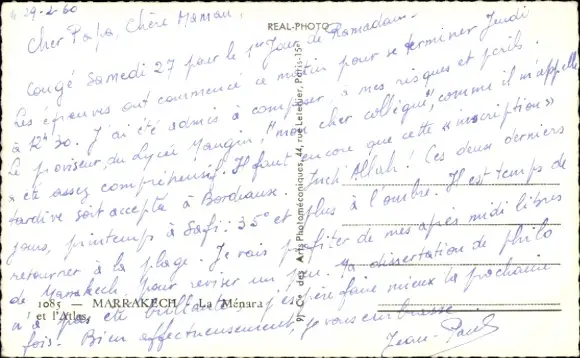 29-2-60
Cher Papa, Chère Maman,
Congé Samedi 27 pour le 1er Jour de Ramadan.
Les épreuves ont commencé ce matin pour se terminer Jeudi
à 12h30. J'ai été admis à composer, à mes risques et périls.
Le proviseur du Lycée Mangin, "mon cher collègue", comme il m'appelle
« est assez compréhensif. Il faut encore que cette « inscription »
tardive soit acceptée à Bordeaux. Inch Allah! Ces deux derniers
jours, printemps à Safi: 35° et plus à l'ombre. Il est temps de
retourner à la plage. Je vais profiter de mes après midi libres
de Marrakech pour reviser un peu. Ma dissertation de philo
n'a pas été brillante: j'espère faire mieux la prochaine
fois. Bien affectueusement, je vous embrasse.
Jean-Paul
REAL-PHOTO
Cie des Arts Photomécaniques, 44, rue Letellier, Paris-15e
1085 — MARRAKECH - La Ménara
et l'Atlas